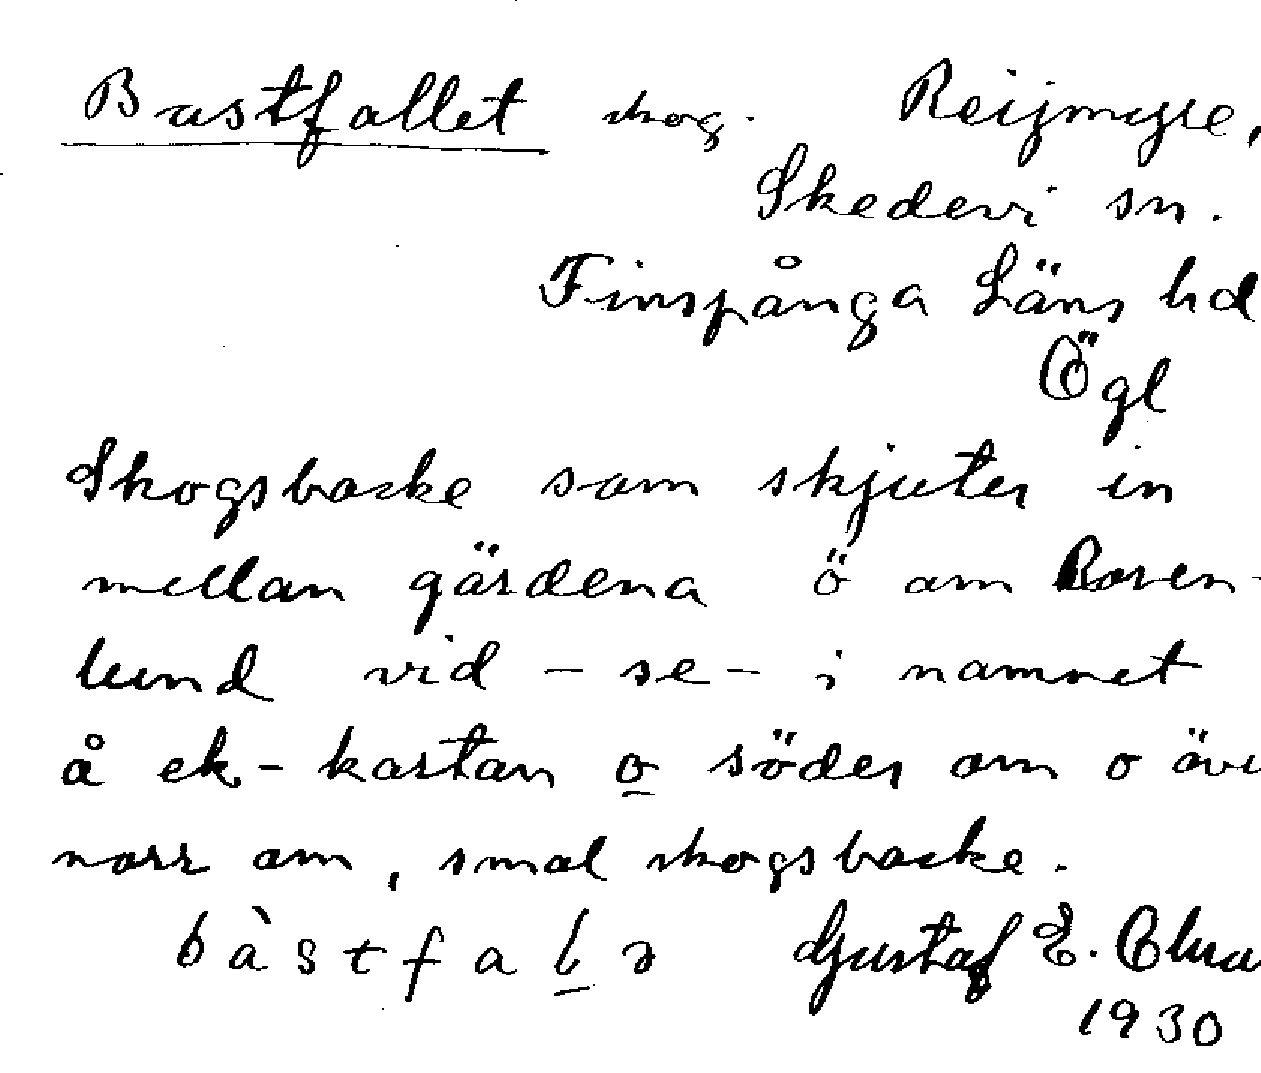 Bastfallet skog. Reijmyre,
Skedevi sn.
Finspånga Läns hd
Ögl
Skogsbacke som skjuter in
mellan gärdena ö om Rosen-
lund vid -se- i namnet
å ek-kartan o söder om o äve
norr om, smal skogsbacke.
bàstfalə Gustaf E.
1930